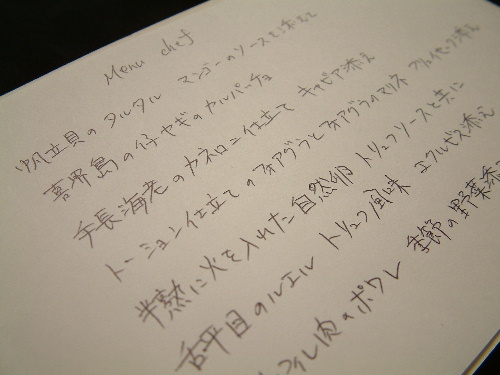 Menu chef
帆立貝のタルタル マンゴーのソースを添えて
喜界島の仔ヤギのカルパッチョ
手長海老のカネロニ仕立て キャビア添え
トーション仕立てのフォアグラとフォアグラのマリネ フルイセック添え
半熟に火を入れた自然卵 トリュフソースと共に
舌平目のルエル トリュフ風味 エクルビス添え
フィレ肉のポワレ 季節の野菜添